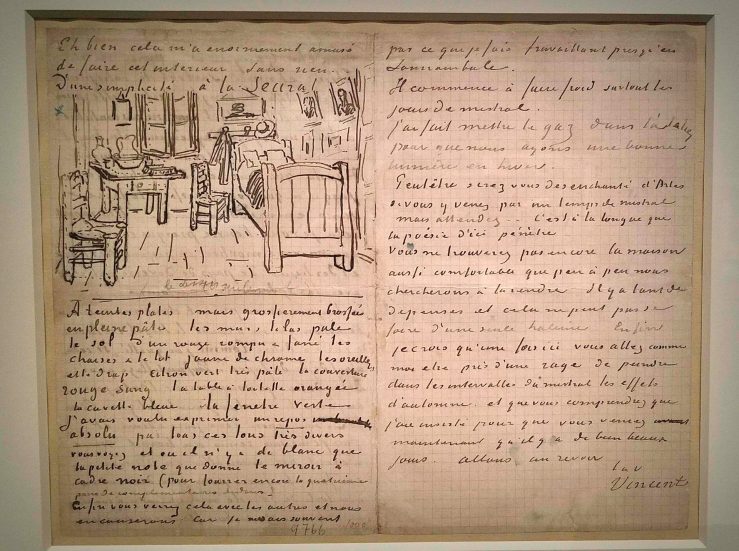 Eh bien cela m'a enormement amusé
de faire cet interieur sans rien.
D'une simplicité à la Seurat
A teintes plates mais grossierement brossées
en pleine pâte les murs lilas pale
le sol d'un rouge rompu & fané les
chaises & le lit jaune de chrome les oreillers
et le drap citron vert très pâle la couverture
rouge sang la table à toilette orangée
la cuvette bleue la fenetre verte
J'avais voulu exprimer un repos
absolu par tous ces tons très divers
vous voyez et ou il n'y a de blanc que
la petite note que donne le miroir à
cadre noir (pour fourrer encore la quatrième
paire de complementaires dedans)
Enfin vous verrez cela avec les autres et nous
en causerons car je ne sais souvent
9766
pas ce que je fais travaillant presqu'en
somnambule.
Il commence à faire froid surtout les
jours de mistral.
J'ai fait mettre le gaz dans l'atelier
pour que nous ayons une bonne
lumière en hiver.
Peutêtre serez vous desenchanté d'Arles
si vous y venez par un temps de mistral
mais attendez... C'est à la longue que
la poésie d'ici pénètre
Vous ne trouverez pas encore la maison
aussi comfortable que peu à peu nous
chercherons à la rendre Il y a tant de
depenses et cela ne peut pas se
faire d'une seule haleine Enfin
je crois qu'une fois ici vous allez comme
moi etre pris d'une rage de peindre
dans les intervalles du mistral les effets
d'automne et que vous comprendrez que
j'ai insisté pour que vous veniez
maintenant qu'il y a de bien beaux
jours. allons au revoir
t. à v.
Vincent